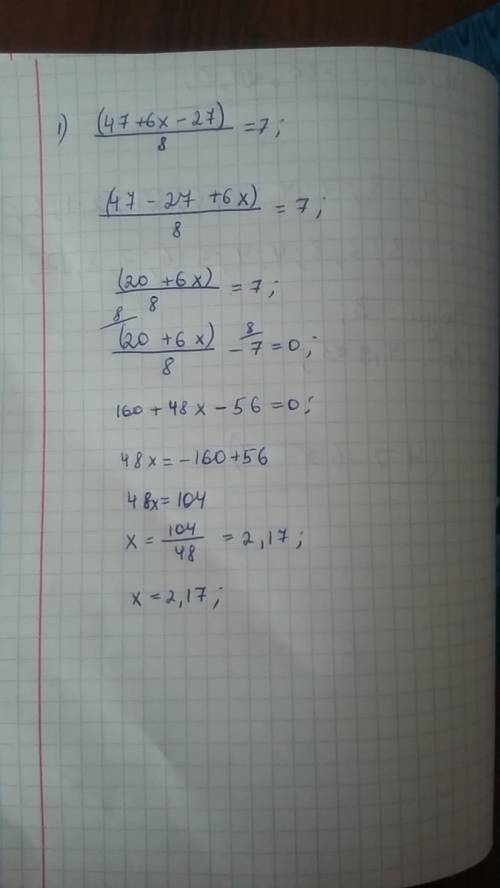 1) (47+6x-27)/8 =7;
(47 - 27 +6x)/8 = 7;
(20 +6x)/8 = 7;
8/ (20 +6x)/8 - 8/ 7 =0;
160+48x-56=0;
48x=-160+56
48x=104
x = 104/48 = 2,17;
x=2,17;